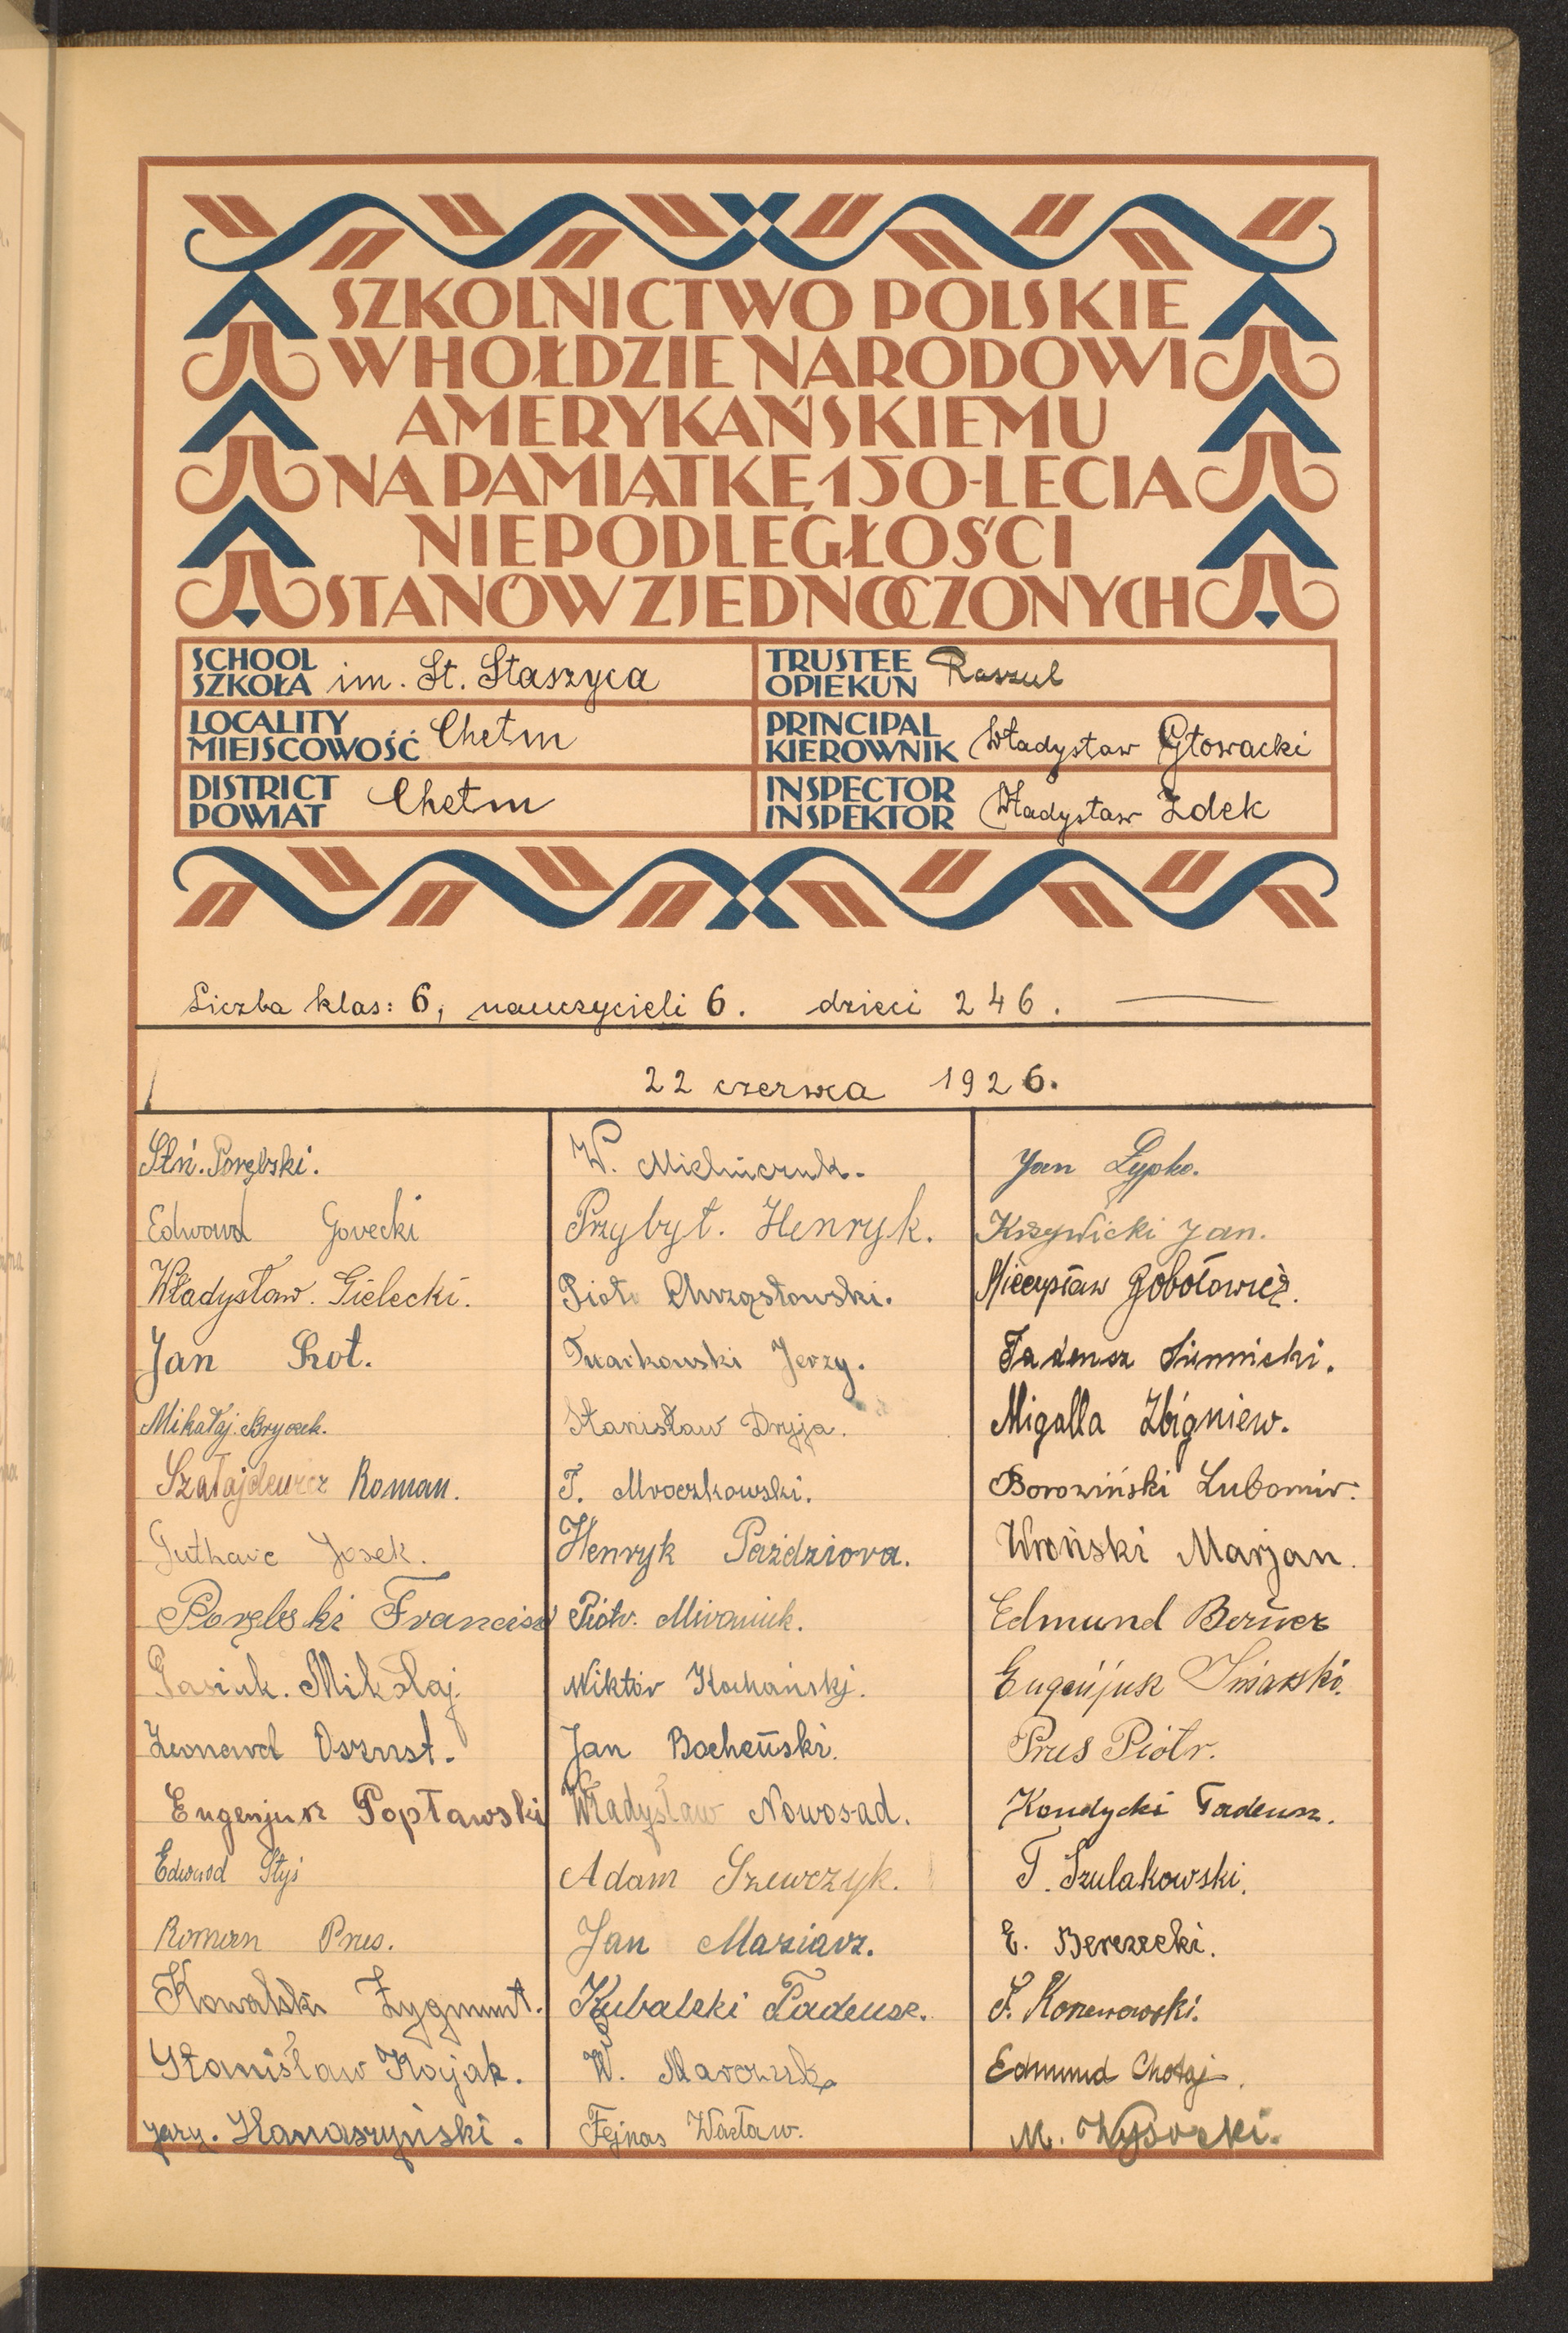 SZKOLNICTWO POLSKIE
W HOŁDZIE NARODOWI
AMERYKAŃSKIEMU
NA PAMIĄTKĘ 150-LECIA
NIEPODLEGŁOŚCI
STANÓW ZJEDNOCZONYCH
SCHOOL
SZKOŁA im. St. Staszyca
TRUSTEE
OPIEKUN Raszul
LOCALITY
MIEJSCOWOŚĆ Chełm
PRINCIPAL
KIEROWNIK Władysław Głowacki
DISTRICT
POWIAT Chełm
INSPECTOR
INSPEKTOR Władysław Zdek
Liczba klas: 6, nauczycieli 6. dzieci 246.
22 czerwca 1926.
Porębski.
Edward Gorecki
Władysław. Gielecki.
Jan
Mikałaj. Bryczek.
Szałajdewicz Roman.
Josek.
Porębski Francisz
Pasiuk. Mikołaj.
Leonard Oszust.
Eugenjusz Popławski
Edward Styś
Roman Prus.
Kowalski Zygmunt.
Stanisław Kojak.
Jerzy. Hanaszyński.
W. Mielniczuk.
Przybył. Henryk.
Piotr Chrząstowski.
Jerzy.
Stanisław Dryja.
T. Mroczkowski.
Henryk Paździora.
Piotr. Mironiuk.
Wiktór Kochańskj.
Jan Bocheński.
Władysław Nowosad.
Adam Szewczyk.
Jan Maziarz.
Kubalski Tadeusz.
W. Marczuk.
Fejnas Wacław.
Jan Lypko.
Krzywicki Jan.
Mieczysław Gobołowicz.
Tadeusz Siennicki.
Migalla Zbigniew.
Boroziński Lubomir.
Wroński Marjan.
Edmund
Eugenjusz
Prus Piotr.
Kondycki Tadeusz.
T. Szulakowski.
E. Berezecki.
S. Korzenowski.
Edmund Chołaj.
M. Wysocki.